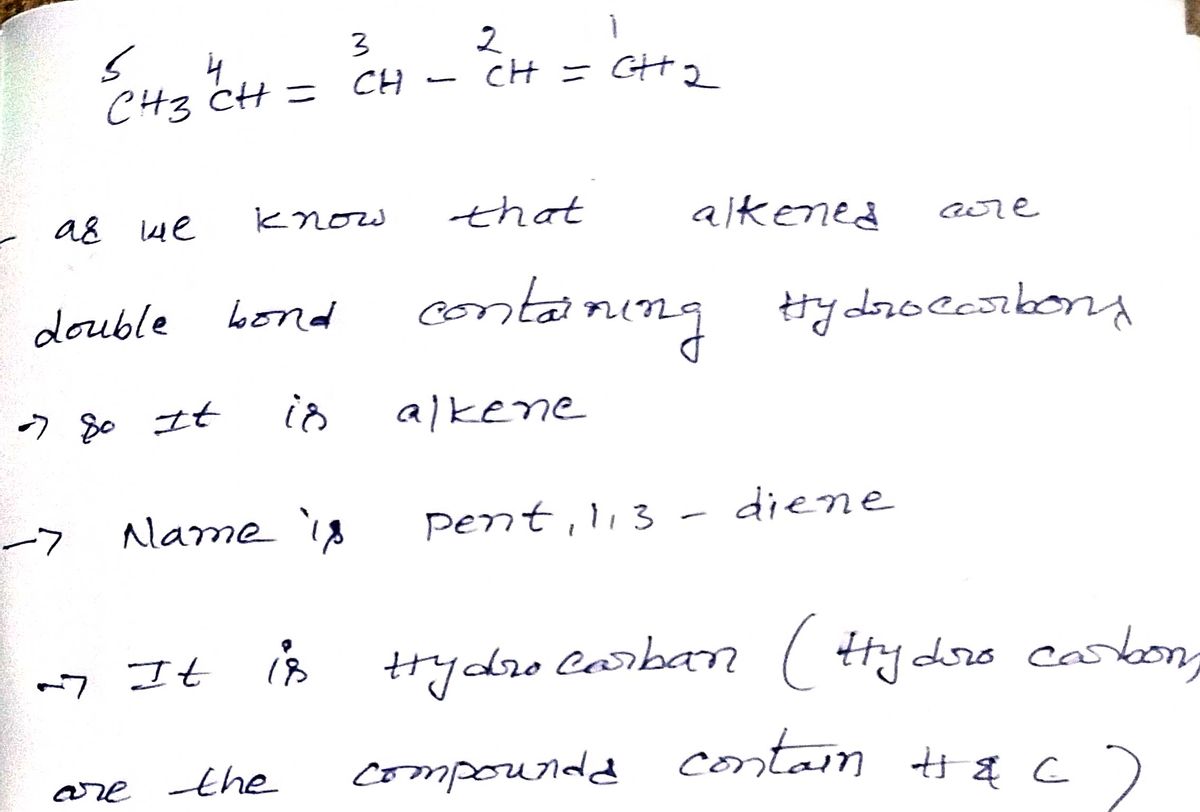 5 4 3 2 1
CH3 CH = CH - CH = CH2
as we know that alkenes are
double bond containing Hydrocarbons
→ so It is alkene
→ Name is pent,1,3 - diene
→ It is Hydrocarban ( Hydro carbons
are the compounds contain H & C )